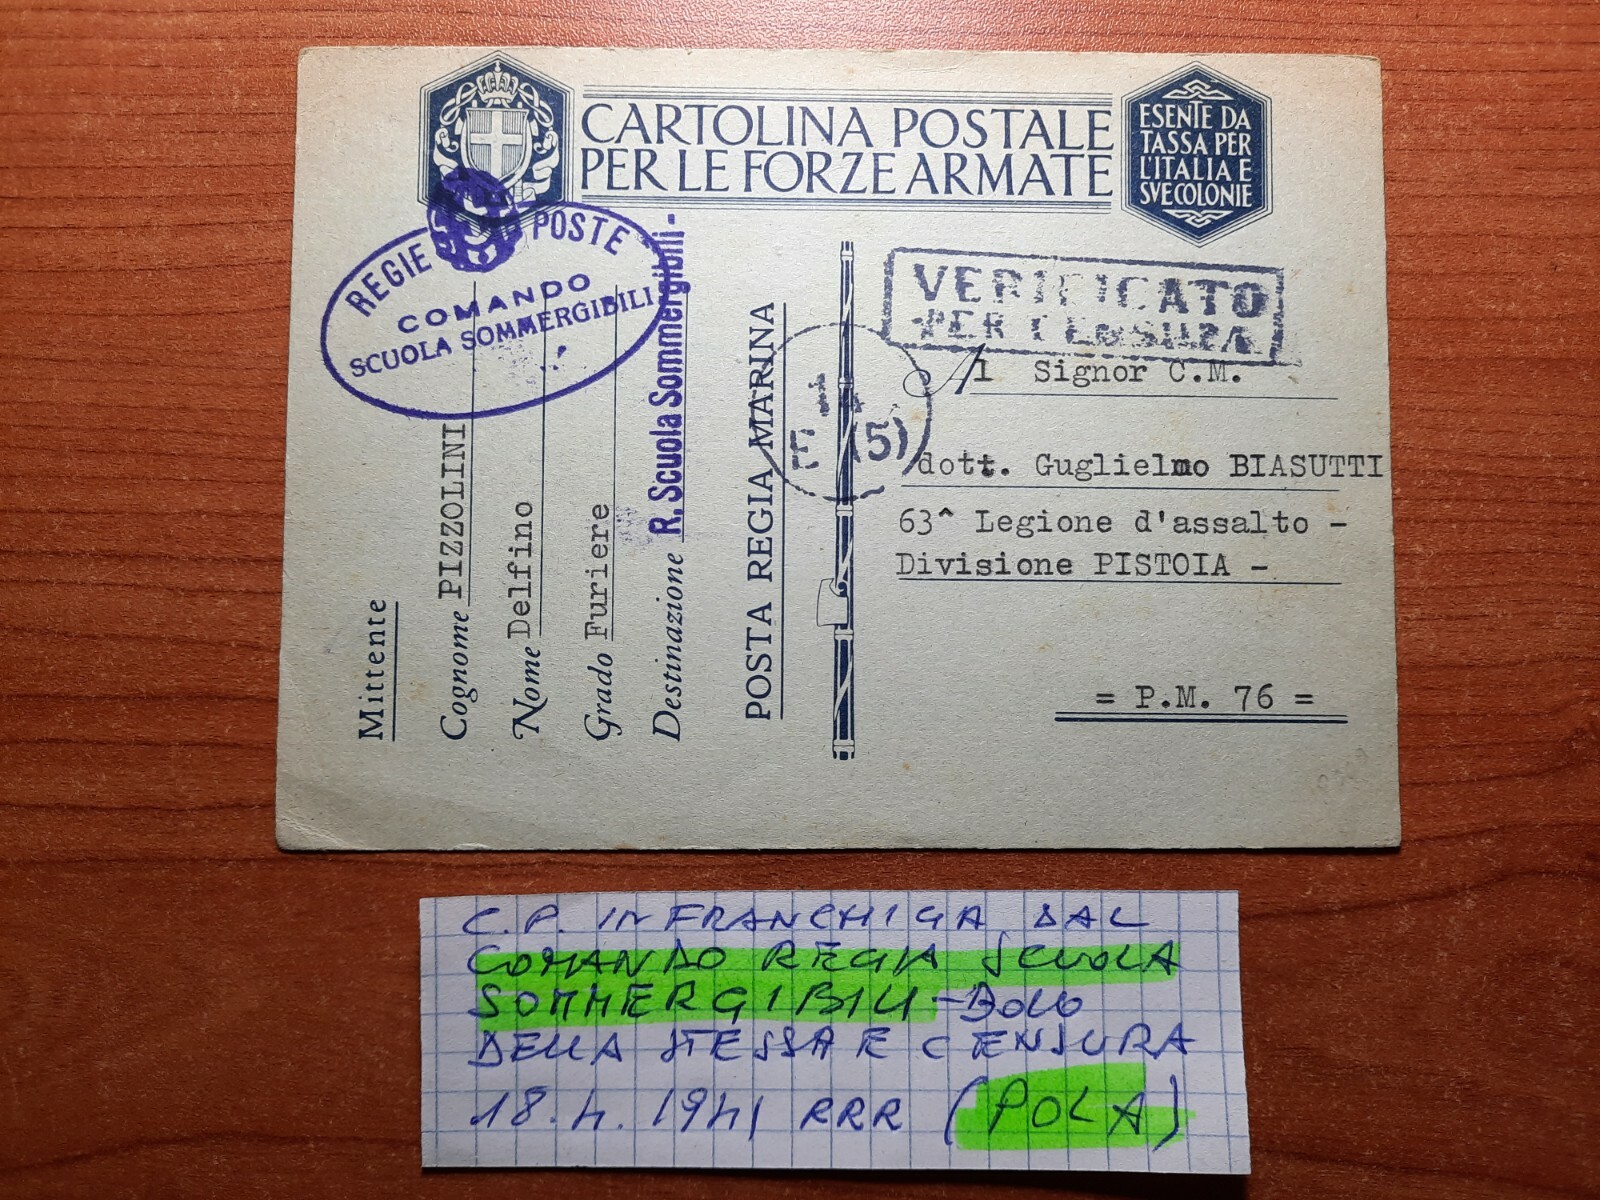 CARTOLINA POSTALE
PER LE FORZE ARMATE
ESENTE DA
TASSA PER
L'ITALIA E
SVE COLONIE
REGIE POSTE
COMANDO
SCUOLA SOMMERGIBILI
Mittente
Cognome PIZZOLINI
Nome Delfino
Grado Furiere
Destinazione R. Scuola Sommergibili-
POSTA REGIA MARINA
VERIFICATO
PER CENSURA
(5)
Al Signor C.M.
dott. Guglielmo BIASUTTI
63^ Legione d'assalto -
Divisione PISTOIA -
= P.M. 76 =
C.P. IN FRANCHIGA DAL
COMANDO REGIA SCUOLA
SOMMERGIBILI - BOLLO
DELLA STESSA E CENSURA
18.4.1941 RRR (POLA)